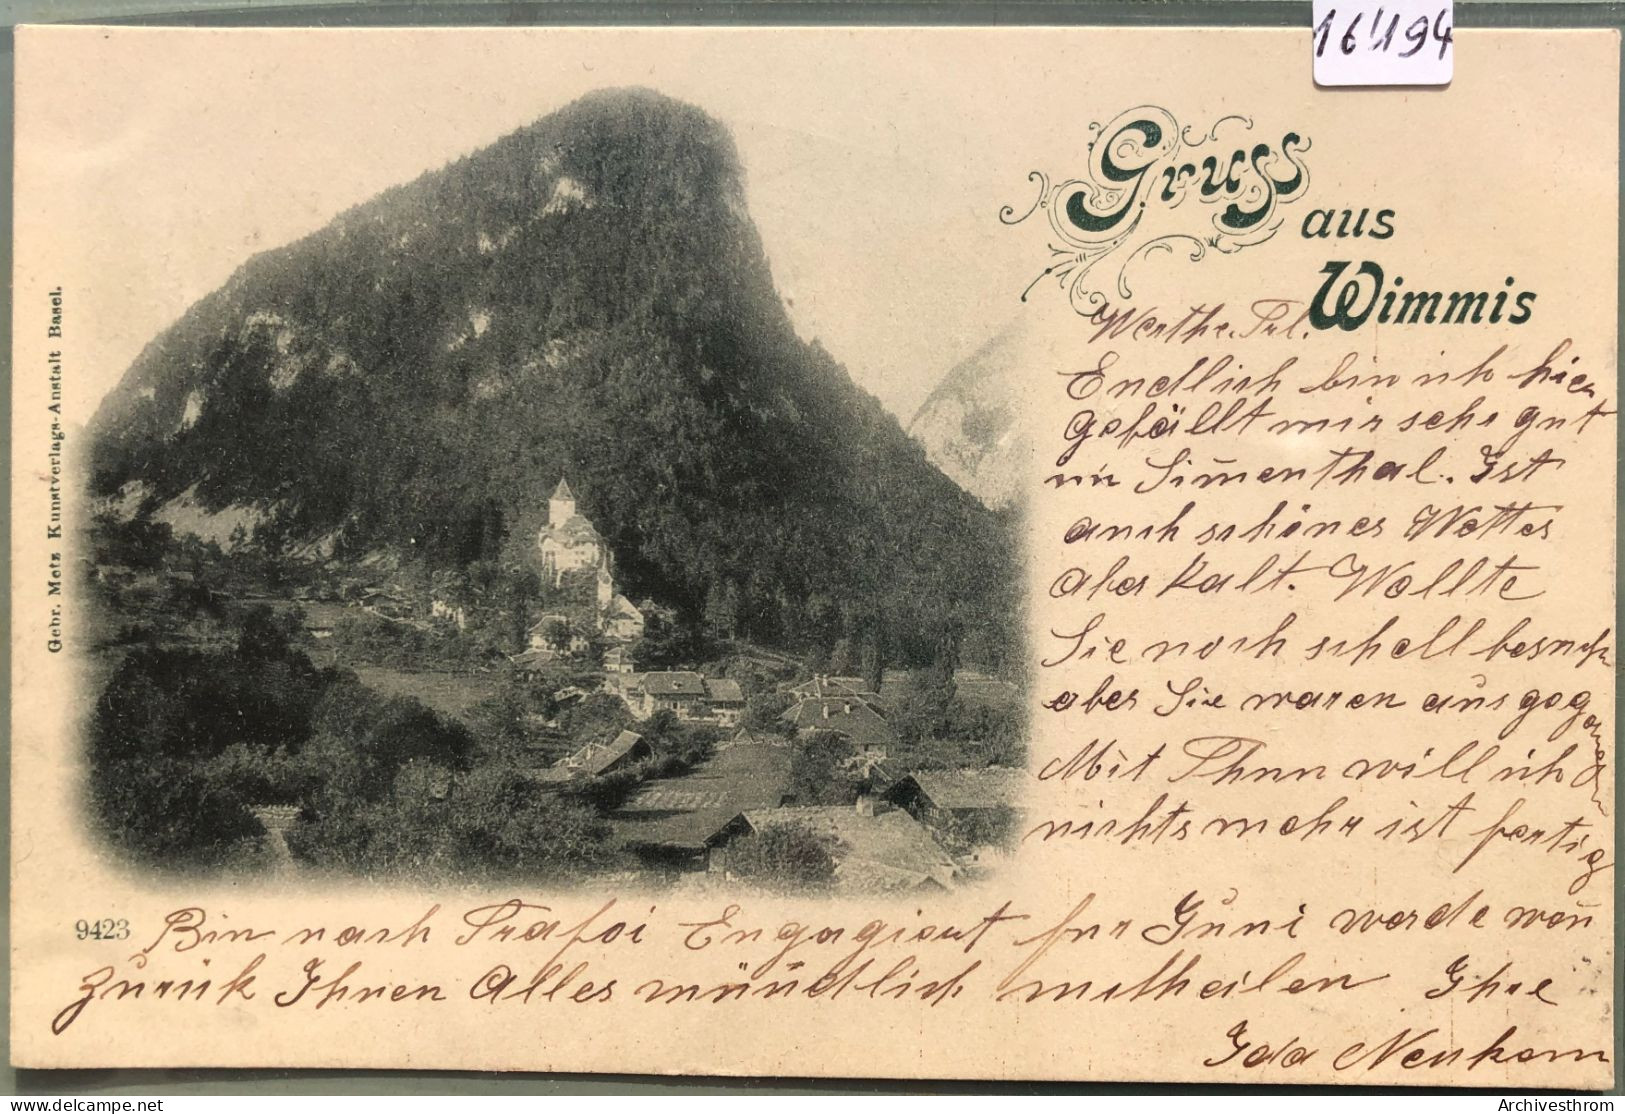 16'194
Gruss
aus
Wimmis
Gebr. Metz Kunstverlags-Anstalt Basel.
Werthe. Frl.
Endlich bin ich hier
gefällt mir sehr gut
im Simenthal. Ist
auch schönes Wetter
aber kalt. Wollte
Sie noch schell besuch
aber Sie waren ausgegangen
Mit Thun will ich
nichts mehr ist fertig
9423 Bin nach Trafoi Engagieut fur Juni werde wen
zurük Ihnen Alles mündlich mittheilen Ihre
Ida Neukom
delcampe.net
Archivesthrom